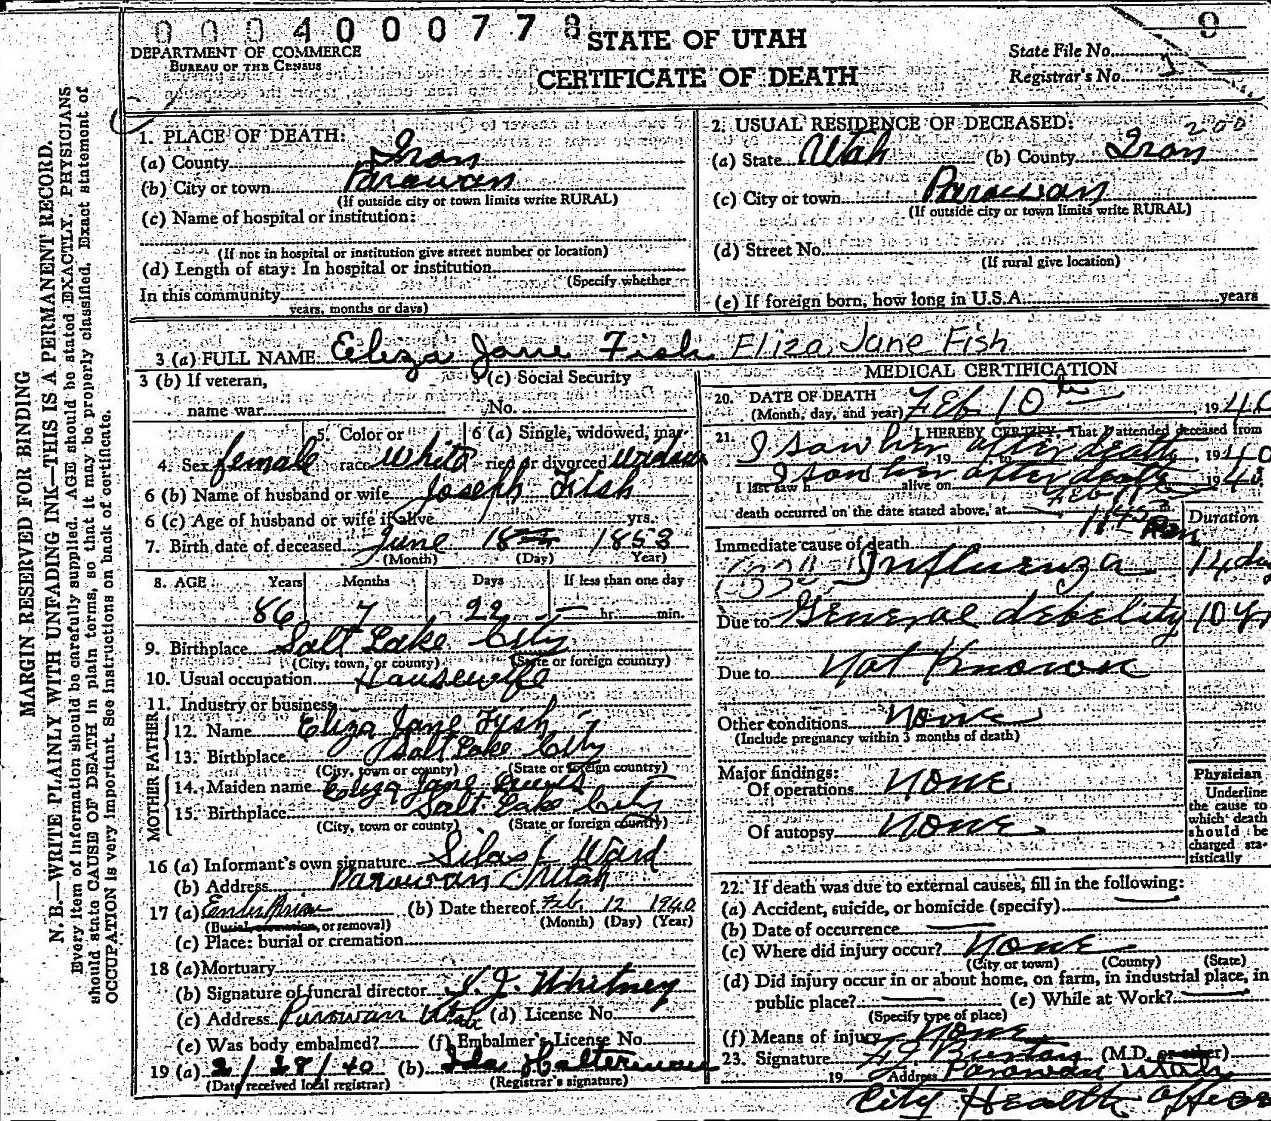 0004000778
STATE OF UTAH
CERTIFICATE OF DEATH
DEPARTMENT OF COMMERCE
BUREAU OF THE CENSUS
State File No. 9
Registrar's No. 1
MARGIN RESERVED FOR BINDING
N. B.—WRITE PLAINLY WITH UNFADING INK—THIS IS A PERMANENT RECORD.
Every item of information should be carefully supplied. AGE should be stated EXACTLY. PHYSICIANS
should state CAUSE OF DEATH in plain terms, so that it may be properly classified. Exact statement of
OCCUPATION is very important. See instructions on back of certificate.
1. PLACE OF DEATH:
(a) County Iron
(b) City or town Parowan
(If outside city or town limits write RURAL)
(c) Name of hospital or institution:
(If not in hospital or institution give street number or location)
(d) Length of stay: In hospital or institution
(Specify whether
In this community
years, months or days)
2. USUAL RESIDENCE OF DECEASED: 200
(a) State Utah (b) County Iron
(c) City or town Parowan
(If outside city or town limits write RURAL)
(d) Street No.
(If rural give location)
(e) If foreign born, how long in U.S.A. years
3 (a) FULL NAME Eliza Jane Fish Eliza Jane Fish
3 (b) If veteran, name war
3 (c) Social Security No.
4. Sex female 5. Color or race White 6 (a) Single, widowed, married or divorced Widow
6 (b) Name of husband or wife Joseph Fish
6 (c) Age of husband or wife if alive yrs.
7. Birth date of deceased June 18 1853
(Month) (Day) Year)
8. AGE Years Months Days If less than one day
86 7 22 — hr. min.
9. Birthplace Salt Lake City
(City, town, or county) (State or foreign country)
10. Usual occupation Housewife
11. Industry or business
FATHER
12. Name Eliza Jane Fish
13. Birthplace Salt Lake City
(City, town or county) (State or foreign country)
MOTHER
14. Maiden name Eliza Jane Lewis
15. Birthplace Salt Lake City
(City, town or county) (State or foreign country)
16 (a) Informant's own signature Silas L Ward
(b) Address Parowan Utah
17 (a) (b) Date thereof Feb. 12 1940
(Burial, cremation, or removal) (Month) (Day) (Year)
(c) Place: burial or cremation
18 (a) Mortuary
(b) Signature of funeral director Whitney
(c) Address Parowan Utah (d) License No.
(e) Was body embalmed? (f) Embalmer's License No.
19 (a) 2/28/40 (b) Ida Halterman
(Date received local registrar) (Registrar's signature)
MEDICAL CERTIFICATION
20. DATE OF DEATH
(Month, day, and year) Feb 10th, 1940
21. I HEREBY CERTIFY, That I attended deceased from
I saw her after death, 19 to , 1940
I last saw h alive on I saw her after death 1940
death occurred on the date stated above, at 11:45 Pm
Duration
Immediate cause of death
Influenza 14 day
Due to General debelity 10 yr
Due to Not Known
Other conditions None
(Include pregnancy within 3 months of death)
Major findings:
Of operations None
Of autopsy None
Physician
Underline
the cause to
which death
should be
charged sta-
tistically
22. If death was due to external causes, fill in the following:
(a) Accident, suicide, or homicide (specify) —
(b) Date of occurrence —
(c) Where did injury occur? None
(City or town) (County) (State)
(d) Did injury occur in or about home, on farm, in industrial place, in
public place? — (e) While at Work? —
(Specify type of place)
(f) Means of injury None
23. Signature Burton (M.D. or other)
19 Address Parowan Utah
City Health Officer